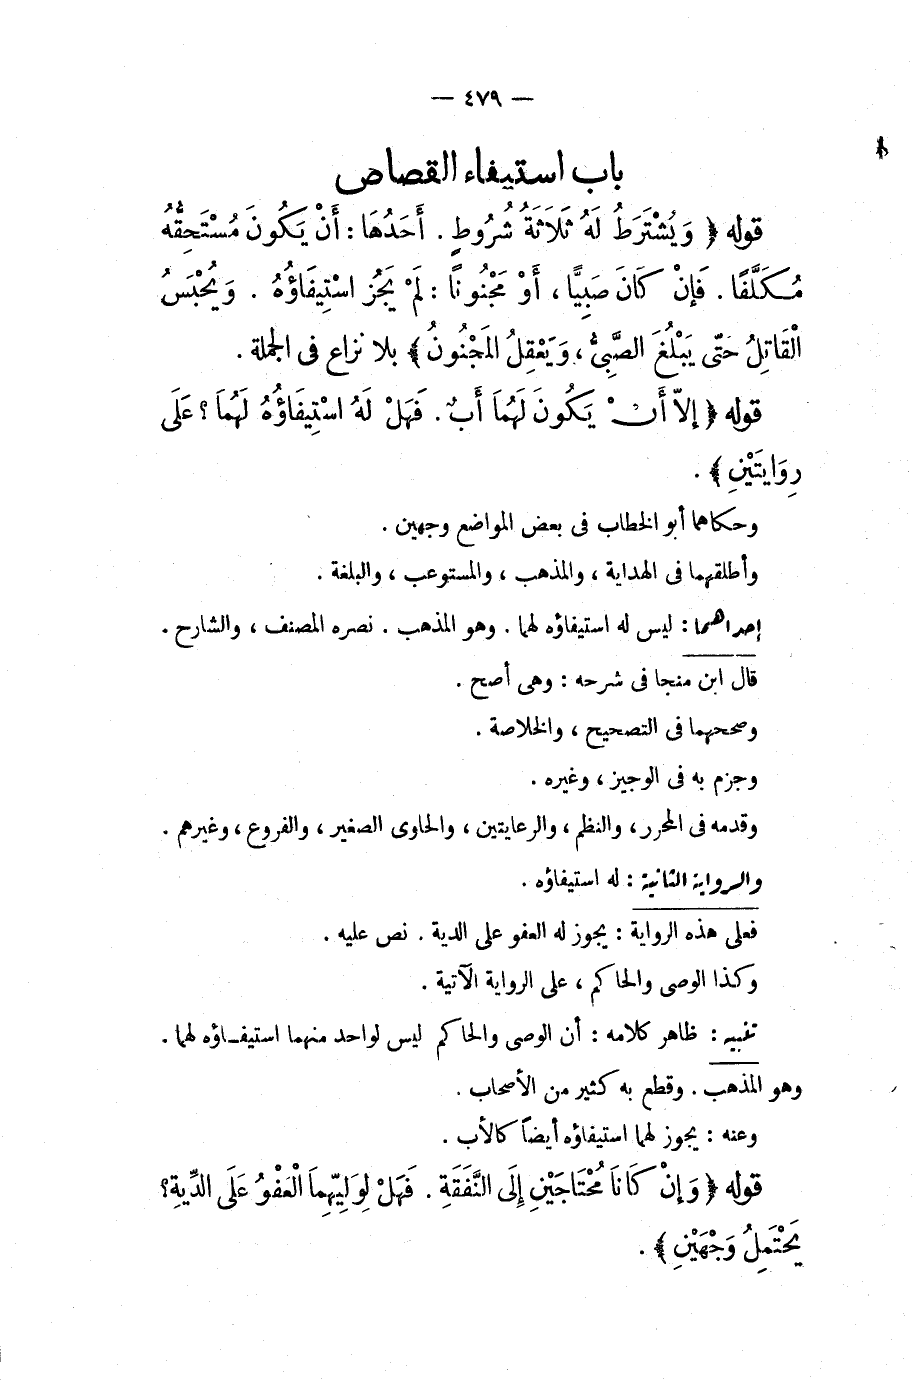 — ٤٧٩ —
باب استيفاء القصاص
قوله ﴿ وَيُشْتَرَطُ لَهُ ثَلَاثَةُ شُرُوطٍ . أَحَدُهَا : أَنْ يَكُونَ مُسْتَحِقُّهُ
مُكَلَّفًا . فَإِنْ كَانَ صَبِيًّا ، أَوْ مَجْنُونًا : لَمْ يَجُزِ اسْتِيفَاؤُهُ . وَيُحْبَسُ
الْقَاتِلُ حَتَّى يَبْلُغَ الصَّبِيُّ ، وَيَعْقِلُ المَجْنُونُ ﴾ بلا نزاع فى الجملة .
قوله ﴿ إلاّ أَنْ يَكُونَ لَهُمَا أَبٌ . فَهَلْ لَهُ اسْتِيفَاؤُهُ لَهُمَا ؟ عَلَى
رِوَايَتَيْنِ ﴾ .
وحكاهما أبو الخطاب فى بعض المواضع وجهين .
وأطلقهما فى الهداية ، والمذهب ، والمستوعب ، والبلغة .
إحداهما : ليس له استيفاؤه لهما . وهو المذهب . نصره المصنف ، والشارح .
قال ابن منجا فى شرحه : وهى أصح .
وصححهما فى التصحيح ، والخلاصة .
وجزم به فى الوجيز ، وغيره .
وقدمه فى المحرر ، والنظم ، والرعايتين ، والحاوى الصغير ، والفروع ، وغيرهم .
والرواية الثانية : له استيفاؤه .
فعلى هذه الرواية : يجوز له العفو على الدية . نص عليه .
وكذا الوصى والحاكم ، على الرواية الآتية .
تنبيه : ظاهر كلامه : أن الوصى والحاكم ليس لواحد منهما استيفـاؤه لهما .
وهو المذهب . وقطع به كثير من الأصحاب .
وعنه : يجوز لهما استيفاؤه أيضاً كالأب .
قوله ﴿ وَإِنْ كَانَا مُحْتَاجَيْنِ إِلَى النَّفَقَةِ . فَهَلْ لِوَلِيِّهِمَا الْعَفْوُ عَلَى الدِّيَةِ؟
يَحْتَمِلُ وَجْهَيْنِ ﴾ .